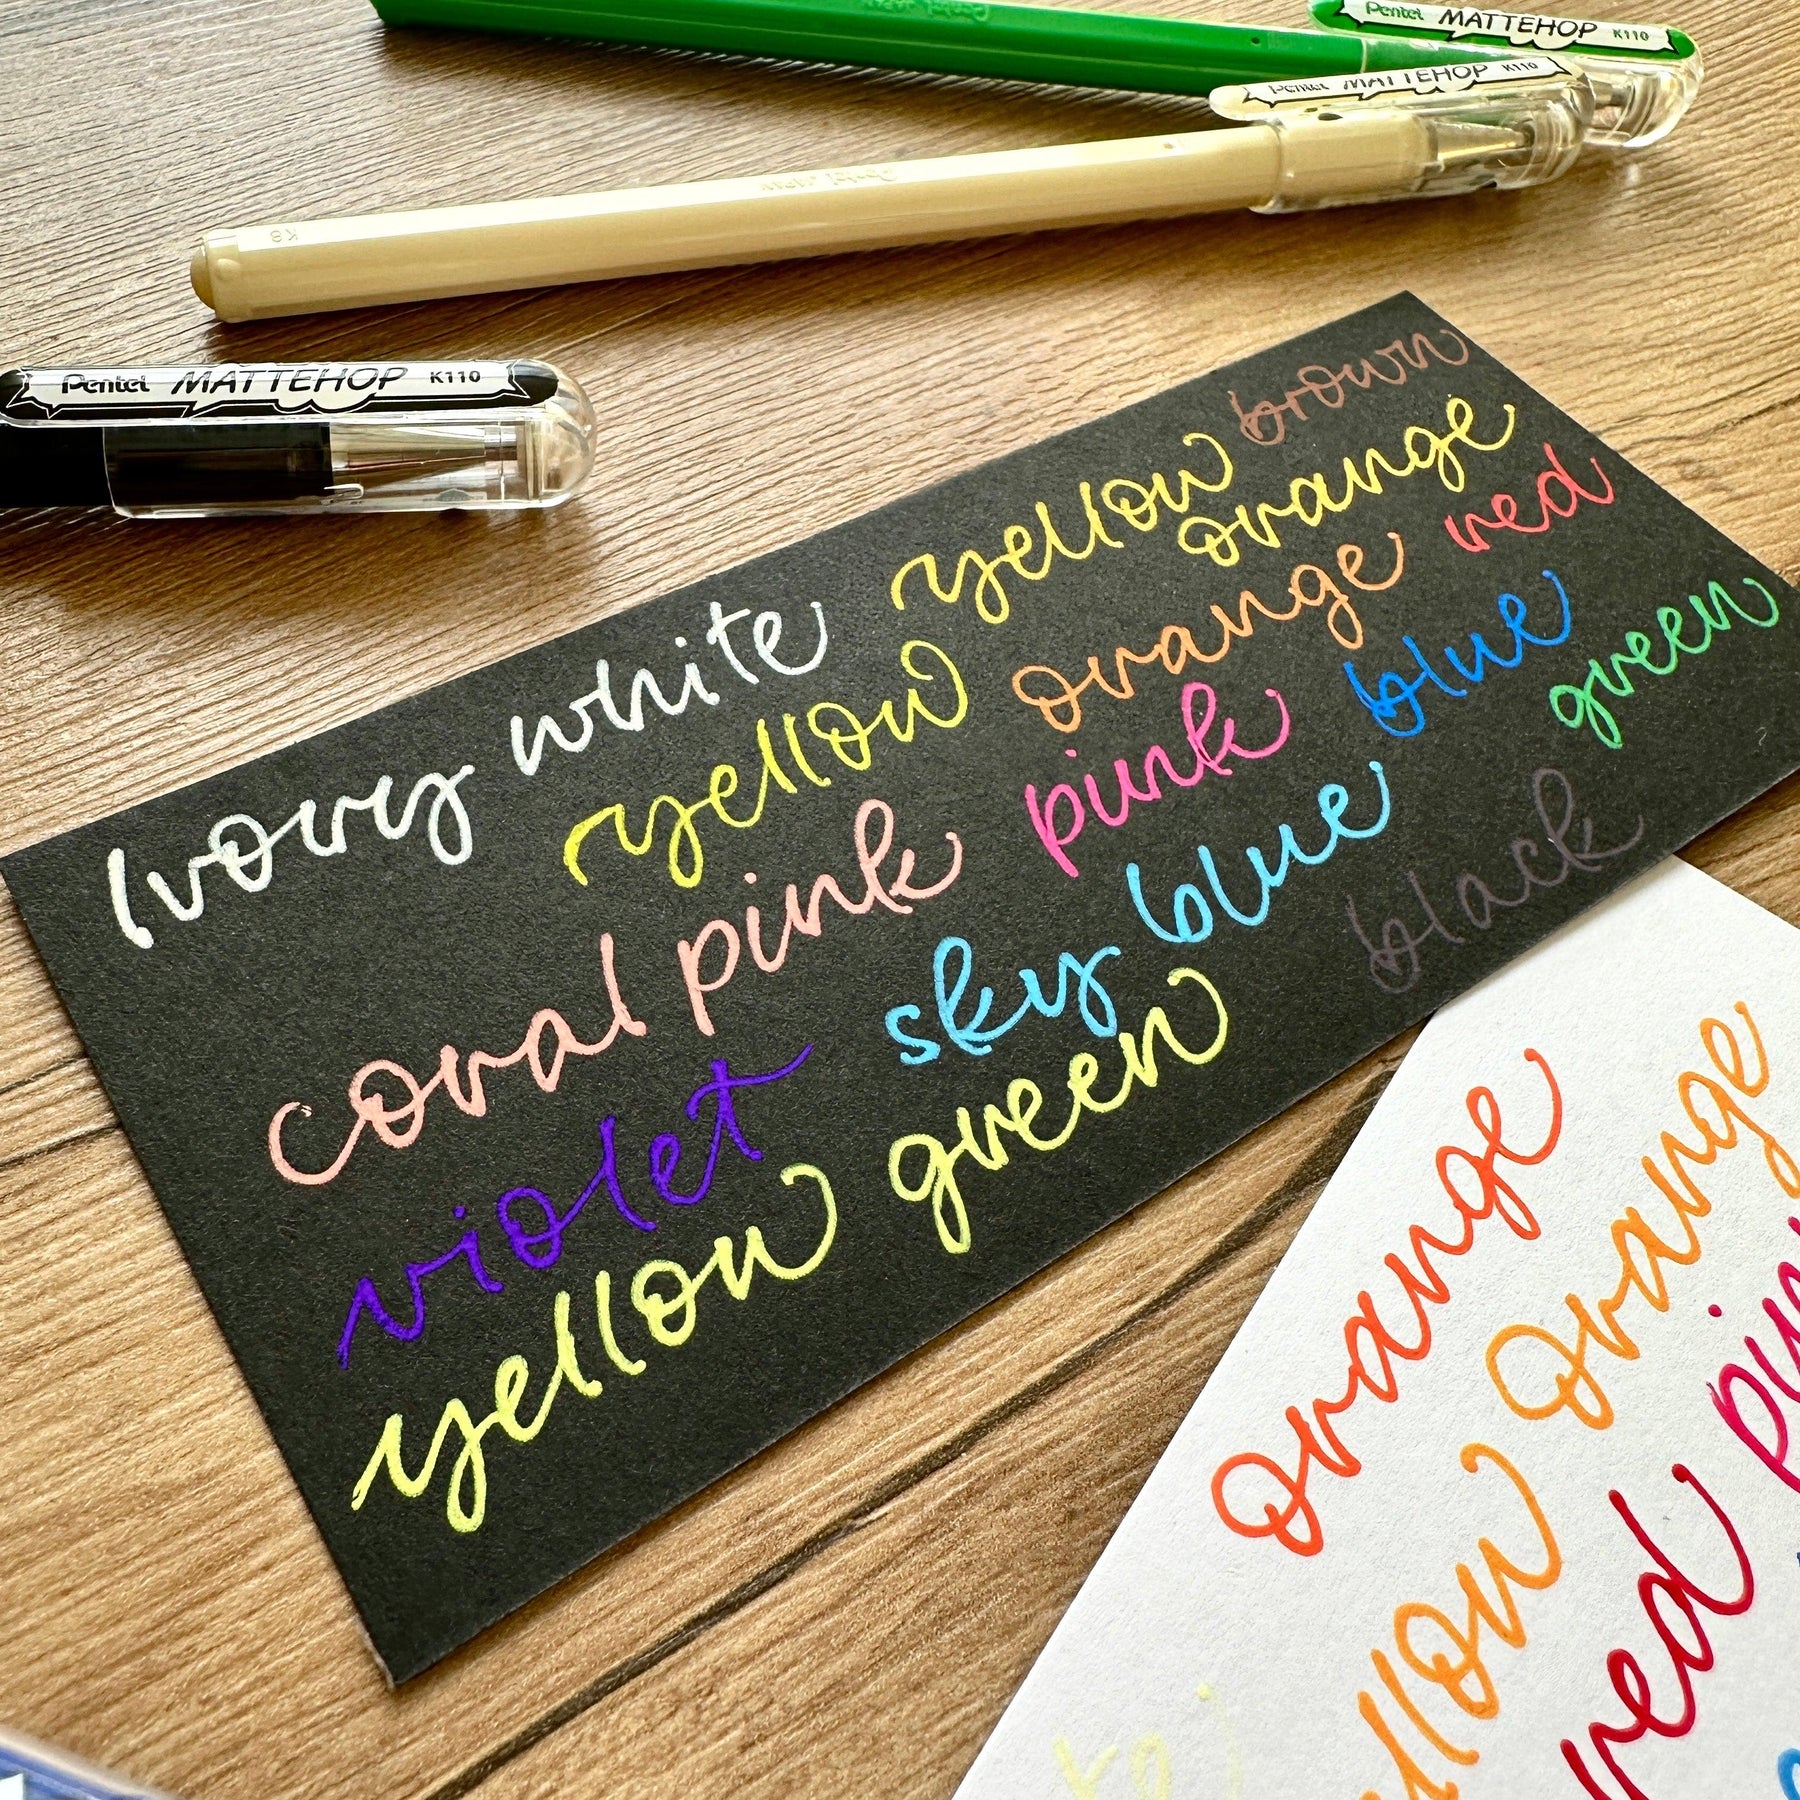 Pentel MATTEHOP K110
Pentel MATTEHOP K110
Pentel JAPAN
K8
Pentel MATTEHOP K110
Ivory white yellow brown
yellow orange
coral pink orange red
pink blue
violet sky blue green
yellow green black
orange
orange
red